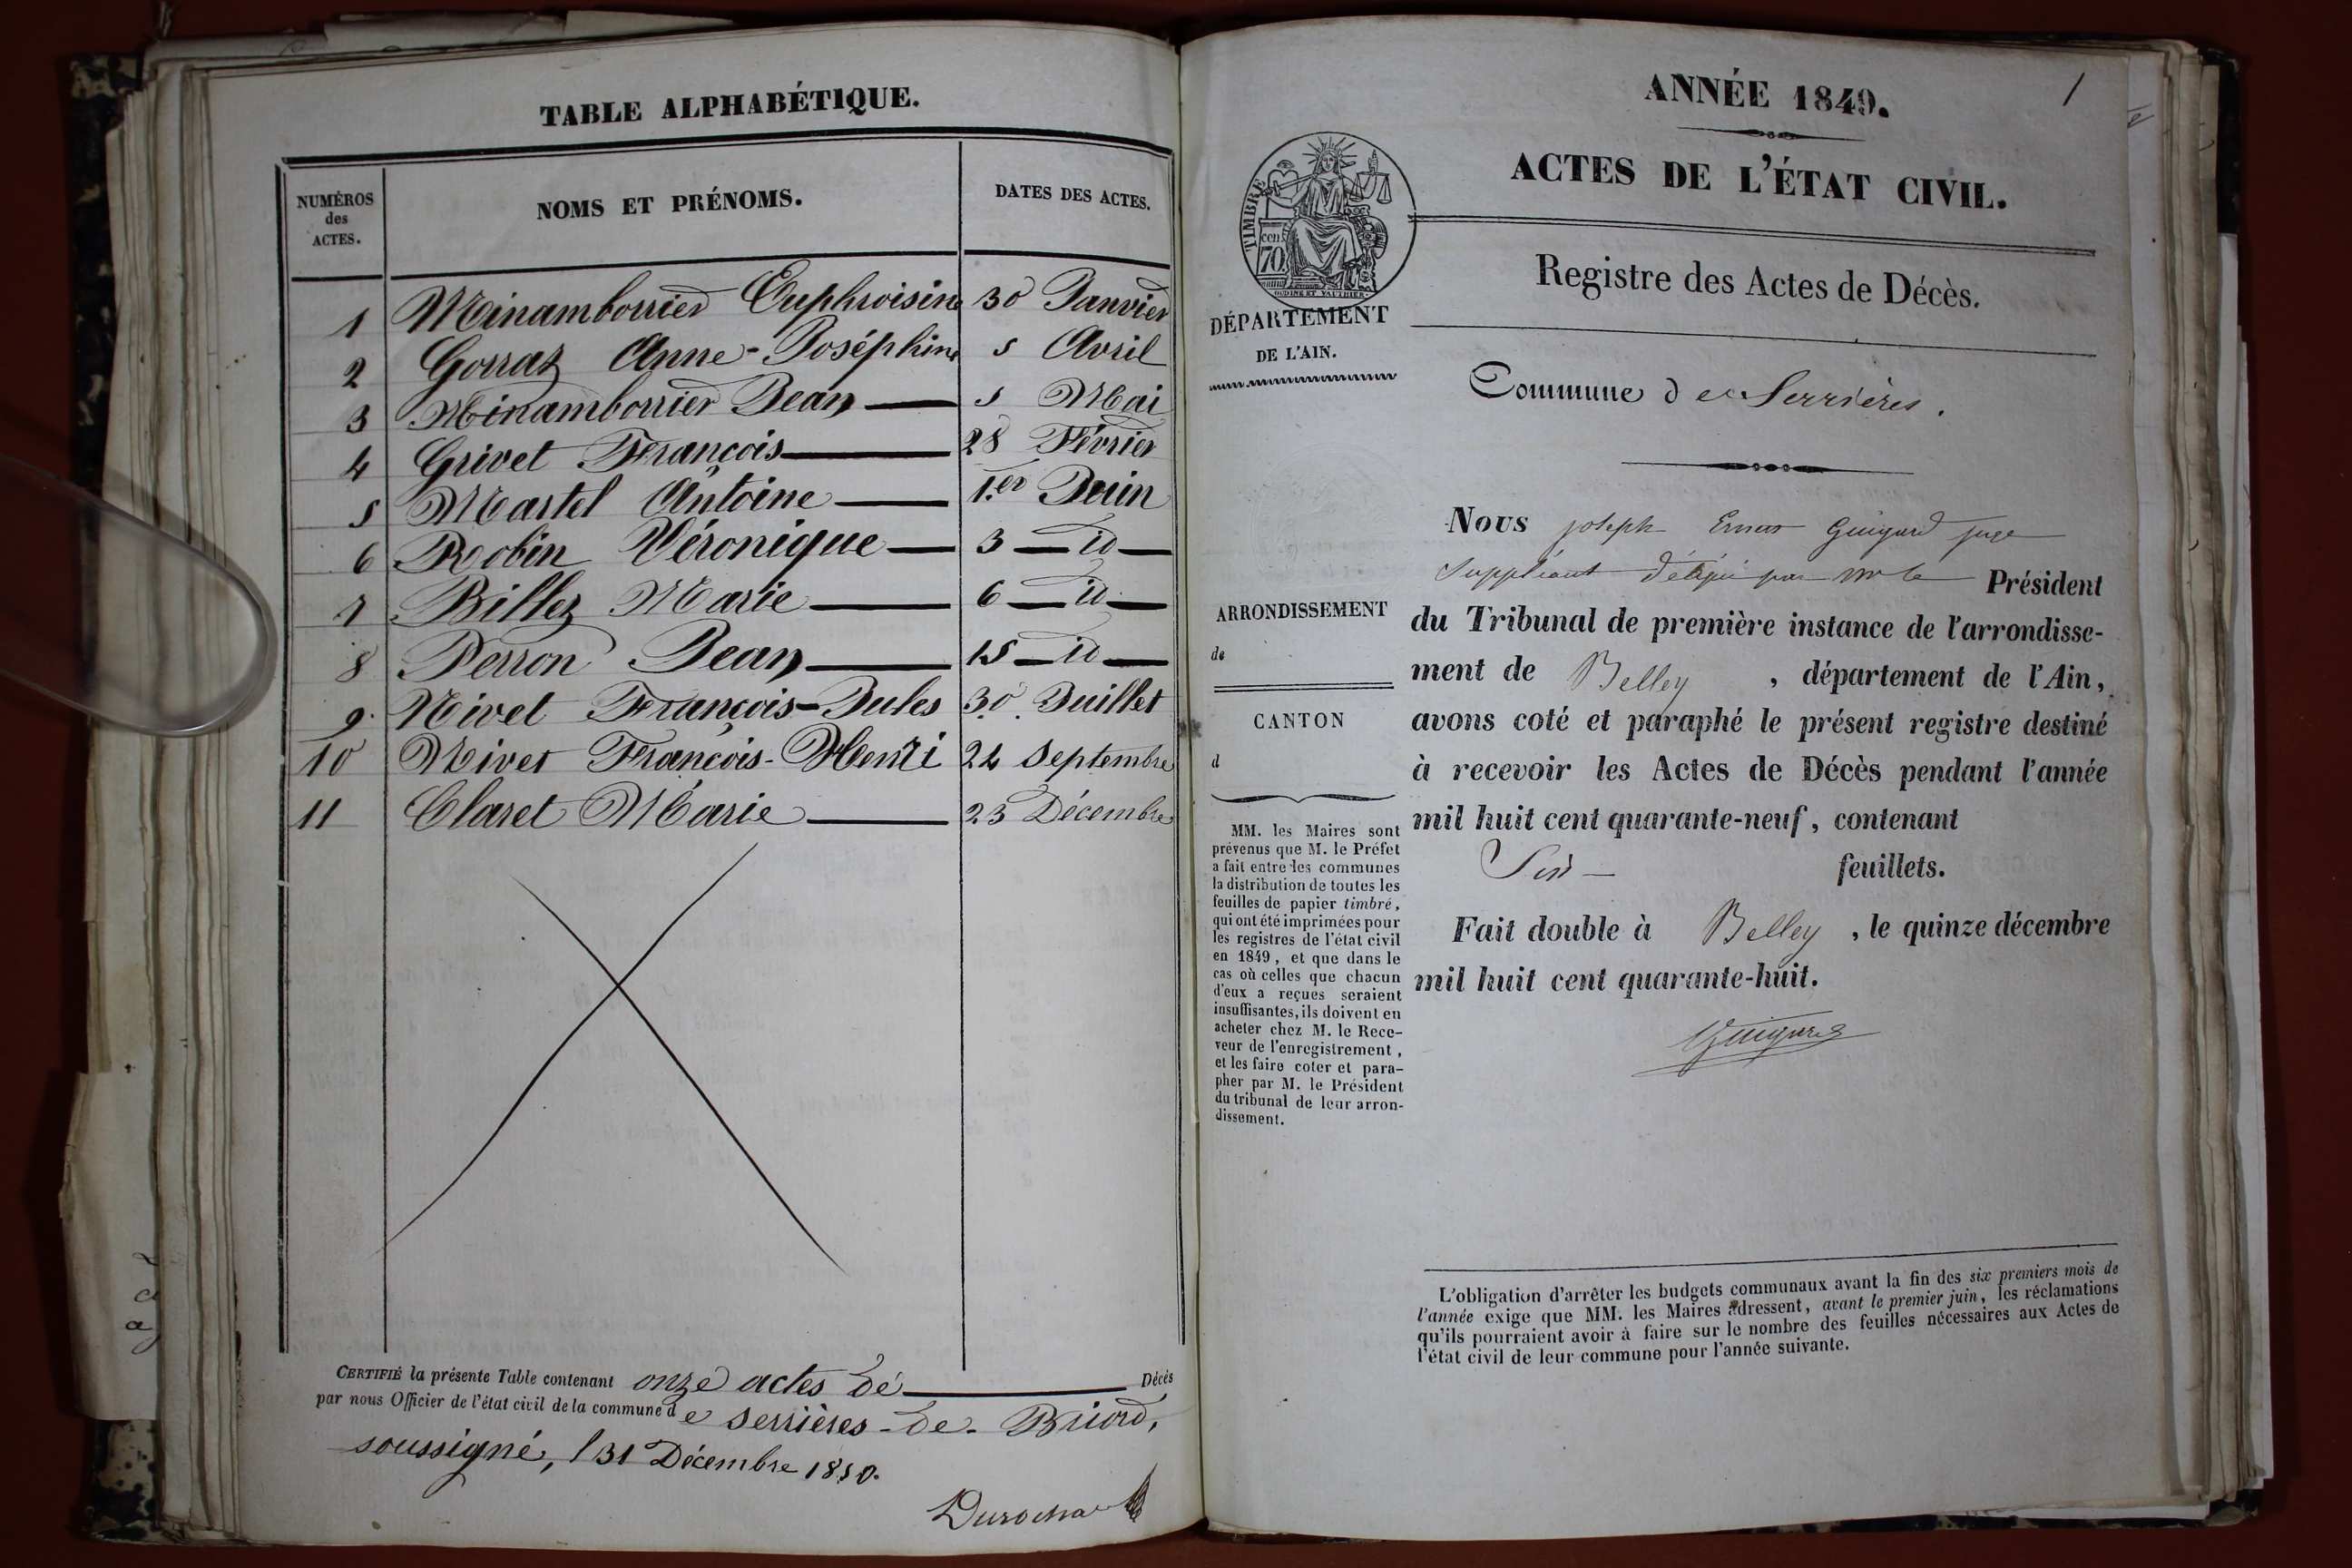 TABLE ALPHABÉTIQUE.
NUMÉROS
des
ACTES.
NOMS ET PRÉNOMS.
DATES DES ACTES.
1 Minamborrier Euphroisine 30 Janvier
2 Gorraz Anne-Joséphine 5 Avril
3 Minamborrier Jean 5 Mai
4 Grivet François 28 Février
5 Martel Antoine 1.er Juin
6 Robin Véronique 3 id
7 Billez Marie 6 id
8 Perron Jean 15 id
9. Nivet François-Jules 30 Juillet
10 Nivet François-Henri 22 Septembre
11 Claret Marie 23 Décembre
CERTIFIÉ la présente Table contenant onze actes de Décés
par nous Officier de l'état civil de la commune de Serrières-de-Briord,
soussigné, l 31 Décembre 1850.
1
ANNÉE 1849.
ACTES DE L'ÉTAT CIVIL.
Registre des Actes de Décès.
TIMBRE
cen.
70
OUDINE ET VAUTHIER
DÉPARTEMENT
DE L'AIN.
Commune de Serrières.
Nous joseph Ernest Guigard juge
Suppléant délégué par mr le Président
du Tribunal de première instance de l'arrondisse-
ment de Belley, département de l'Ain,
avons coté et paraphé le présent registre destiné
à recevoir les Actes de Décès pendant l'année
mil huit cent quarante-neuf, contenant
Six feuillets.
Fait double à Belley, le quinze décembre
mil huit cent quarante-huit.
Guigard
ARRONDISSEMENT
de
CANTON
d
MM. les Maires sont
prévenus que M. le Préfet
a fait entre les communes
la distribution de toutes les
feuilles de papier timbré,
qui ont été imprimées pour
les registres de l'état civil
en 1849, et que dans le
cas où celles que chacun
d'eux a reçues seraient
insuffisantes, ils doivent en
acheter chez M. le Rece-
veur de l'enregistrement,
et les faire coter et para-
pher par M. le Président
du tribunal de leur arron-
dissement.
L'obligation d'arrêter les budgets communaux avant la fin des six premiers mois de
l'année exige que MM. les Maires adressent, avant le premier juin, les réclamations
qu'ils pourraient avoir à faire sur le nombre des feuilles nécessaires aux Actes de
l'état civil de leur commune pour l'année suivante.